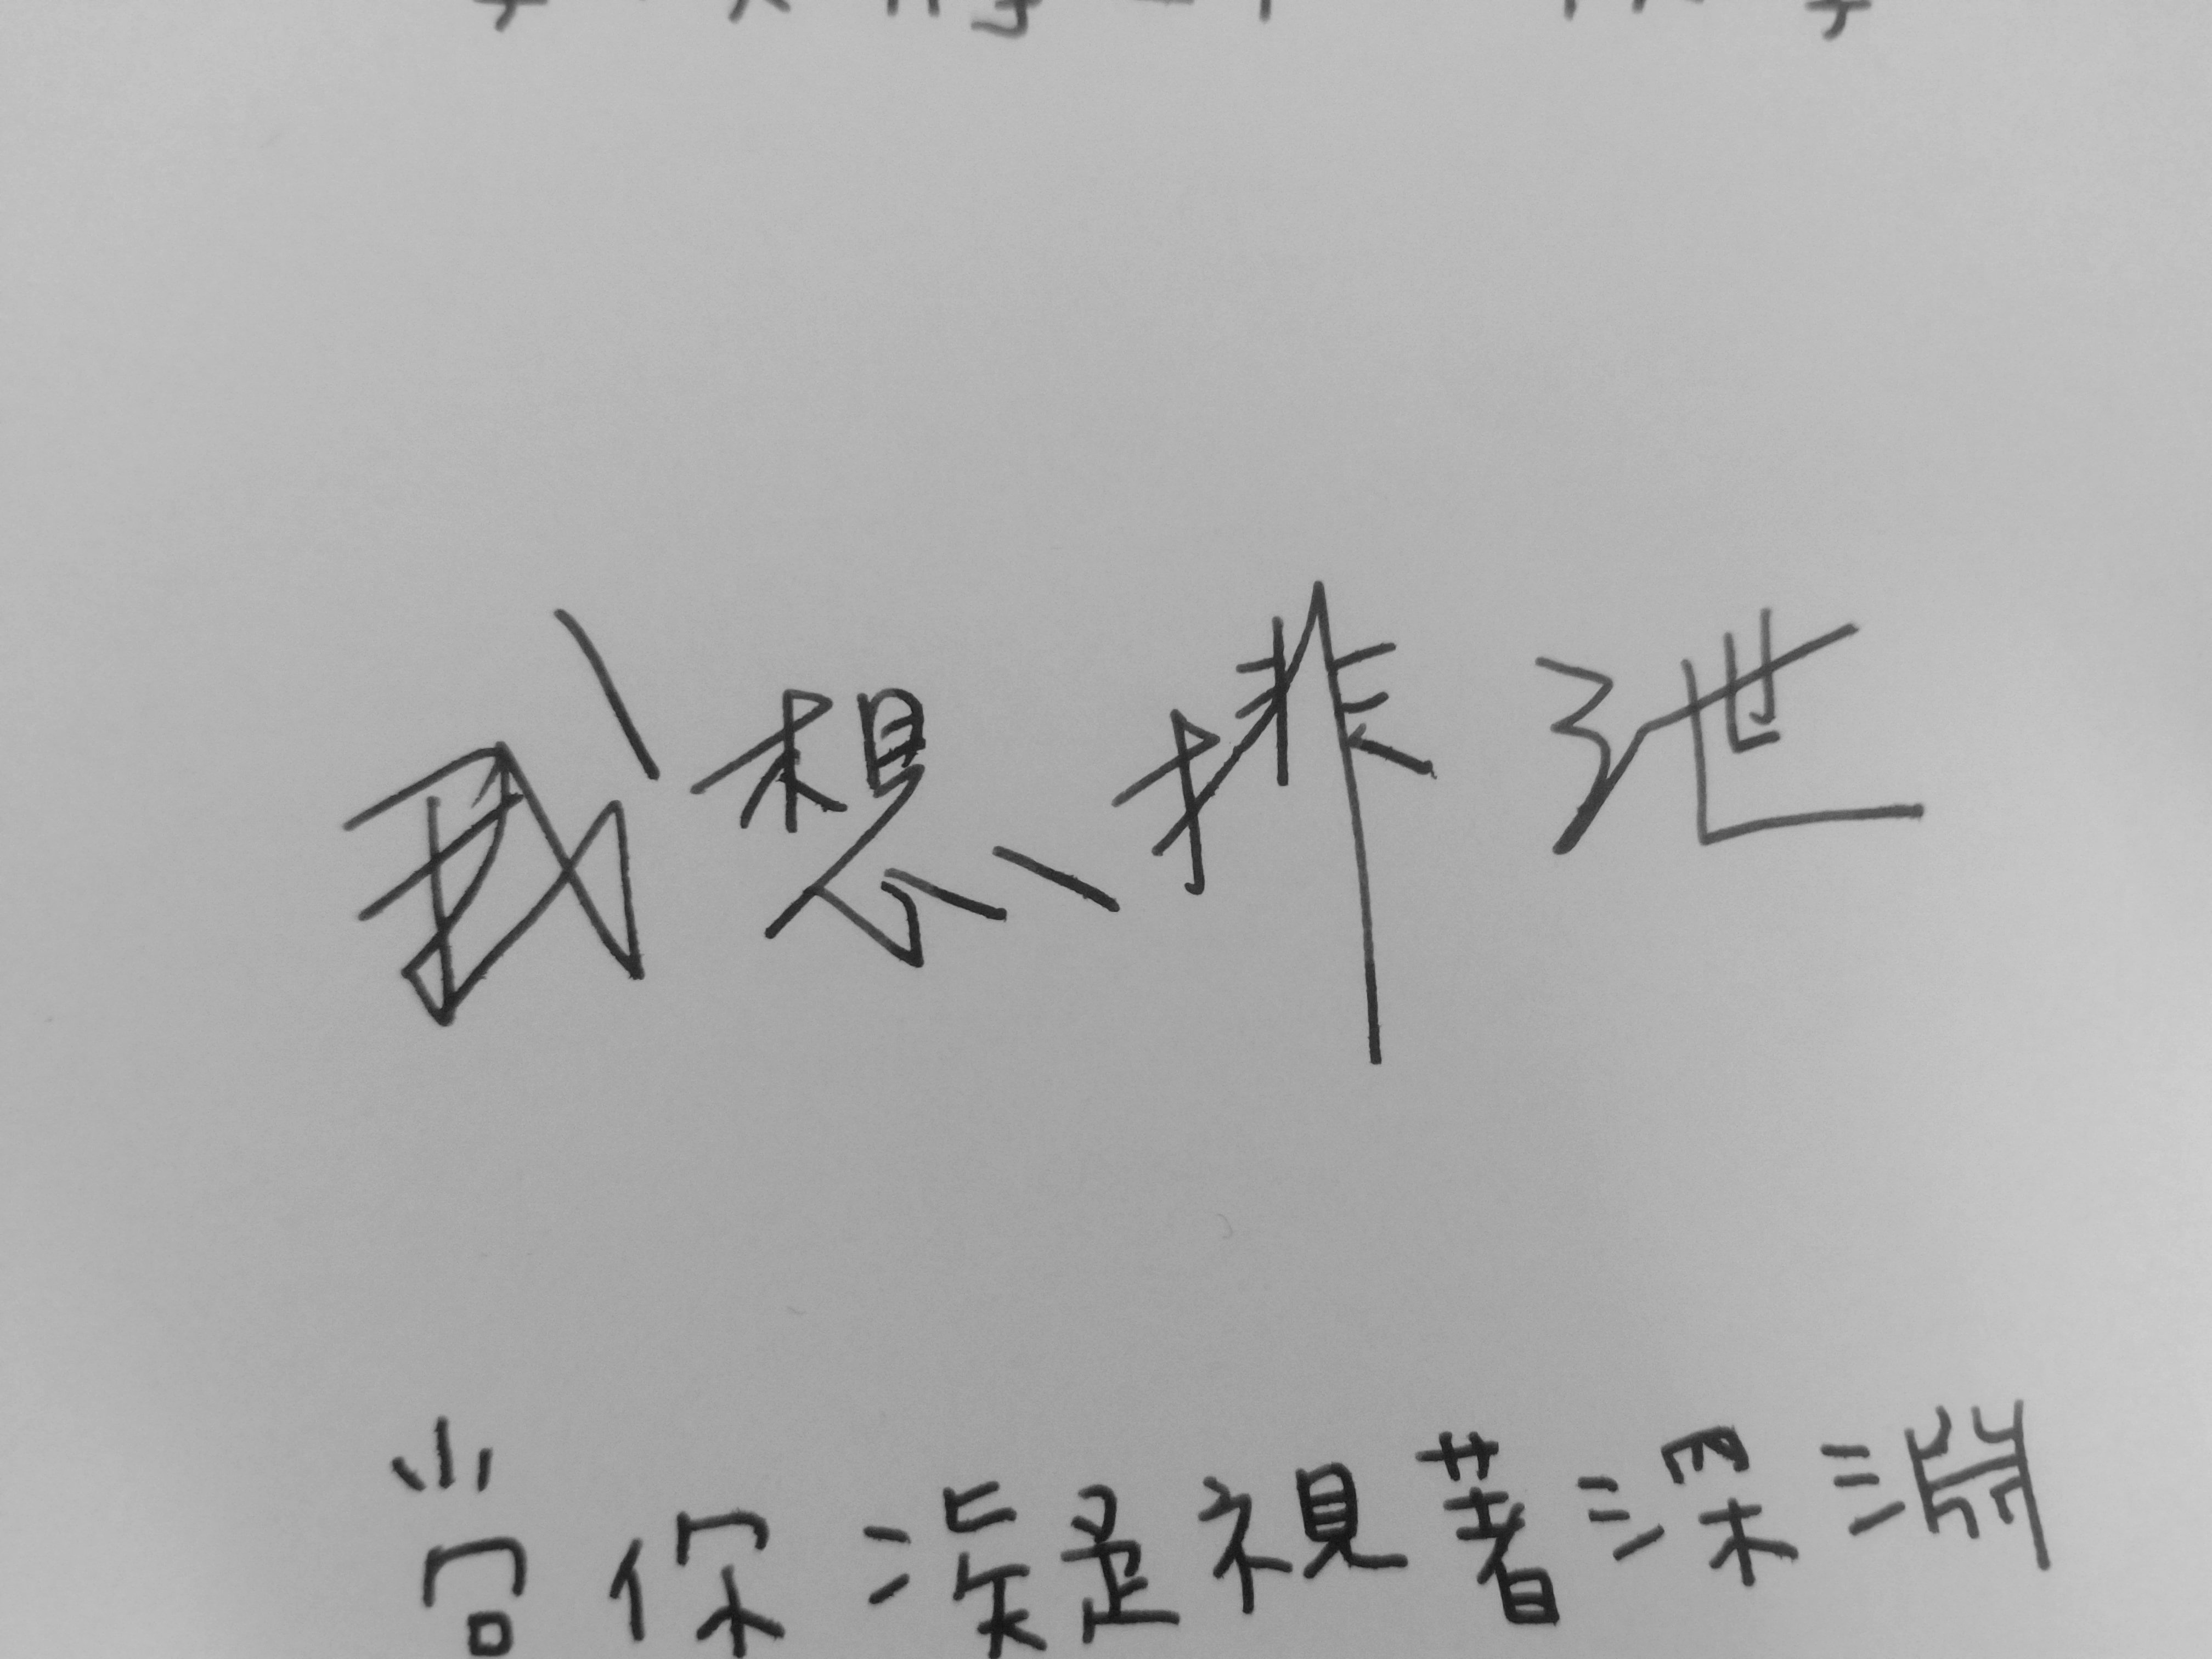 我想排泄
當你凝視著深淵